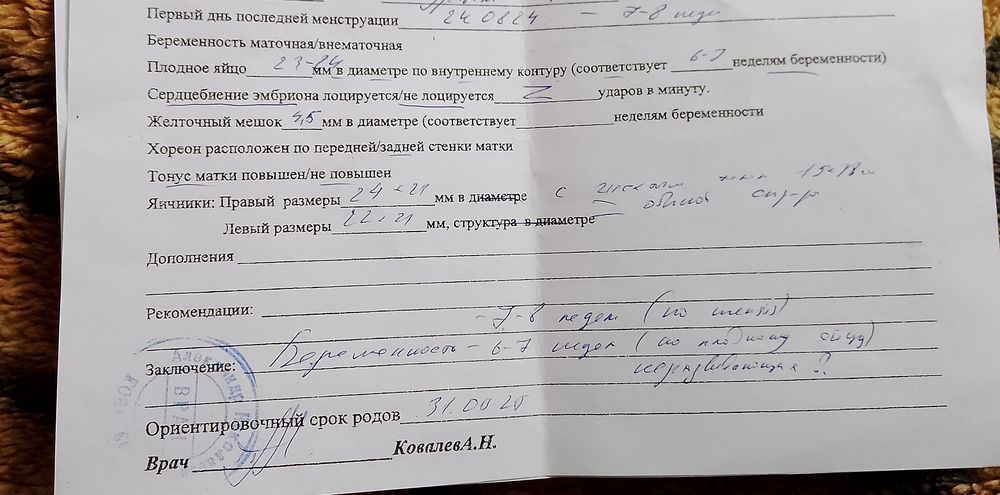 Первый днь последней менструации 240824 - 7-8 недел
Беременность маточная/внематочная
Плодное яйцо 23-24 мм в диаметре по внутреннему контуру (соответствует 6-7 неделям беременности)
Сердцебиение эмбриона лоцируется/не лоцируется ударов в минуту.
Желточный мешок 4,5 мм в диаметре (соответствует неделям беременности
Хореон расположен по передней/задней стенки матки
Тонус матки повышен/не повышен
Яичники: Правый размеры 24×21 мм в диаметре с
Левый размеры 22×21 мм, структура в диаметре
Дополнения
Рекомендации:
- 7-8 недел
Заключение: Беременность - 6-7 недел (по плодному яйцу)
неразвивающаяся?
Ориентировочный срок родов
Врач Ковалев А.Н.
Александр
ВРАЧ